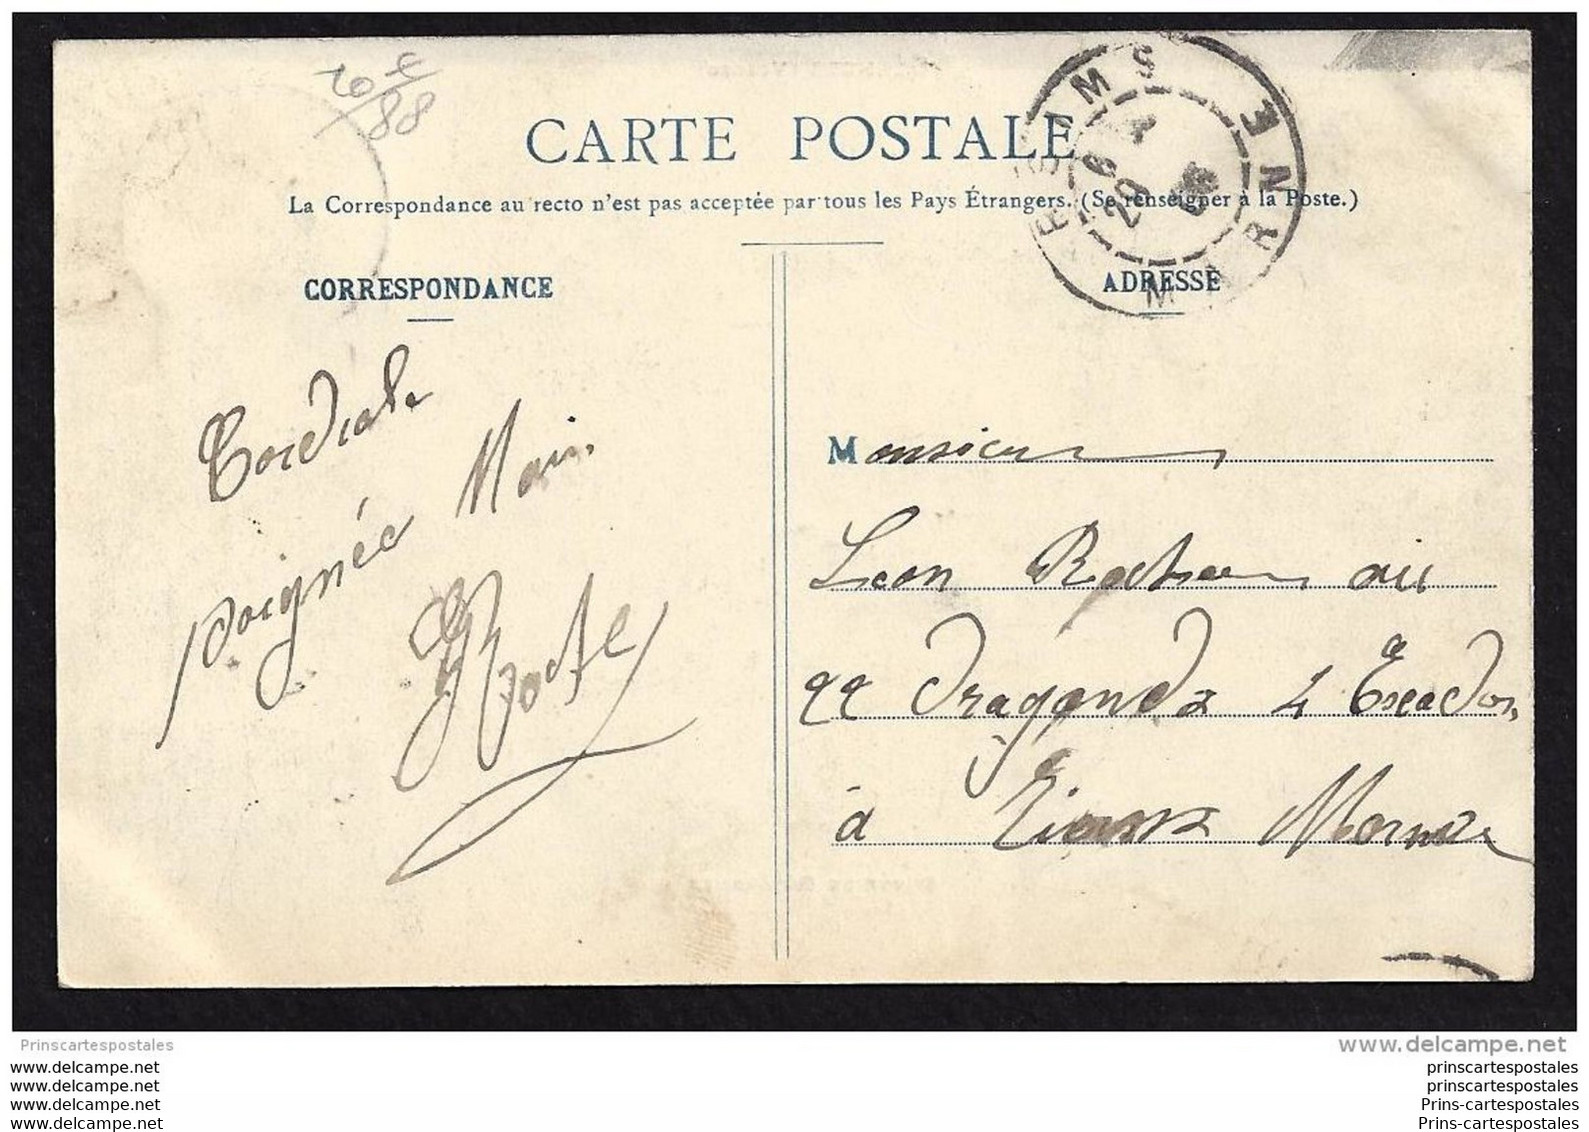 20 €
88
CARTE POSTALE
La Correspondance au recto n'est pas acceptée par tous les Pays Étrangers. (Se renseigner à la Poste.)
REIMS MARNE
29
CORRESPONDANCE
ADRESSE
Cordiale
poignée Main
Monsieur
Leon au
22 Dragonds 4 Escadon
à Reims Marne
Prinscartespostales
www.delcampe.net
www.delcampe.net
www.delcampe.net
www.delcampe.net
www.delcampe.net
prinscartespostales
prinscartespostales
Prins-cartespostales
Prins-cartespostales